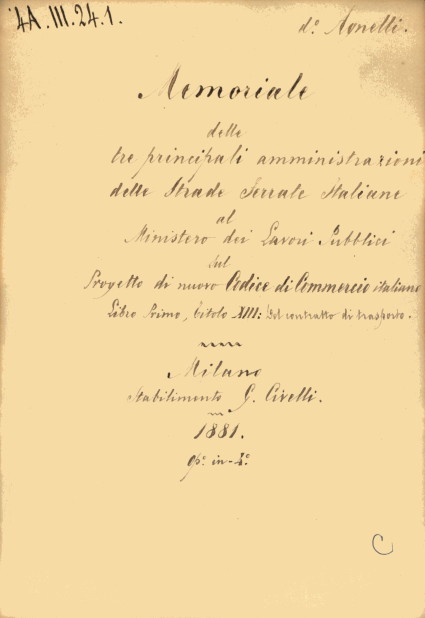 4A.III.24.1.
d.º Agnelli.
Memoriale
delle
tre principali amministrazioni
delle Strade Ferrate Italiane
al
Ministero dei Lavori Pubblici
sul
Progetto di nuovo Codice di Commercio italiano
Libro Primo, titolo XIII: Del contratto di trasporto.
Milano
Stabilimento G. Civelli.
1881.
in-
C